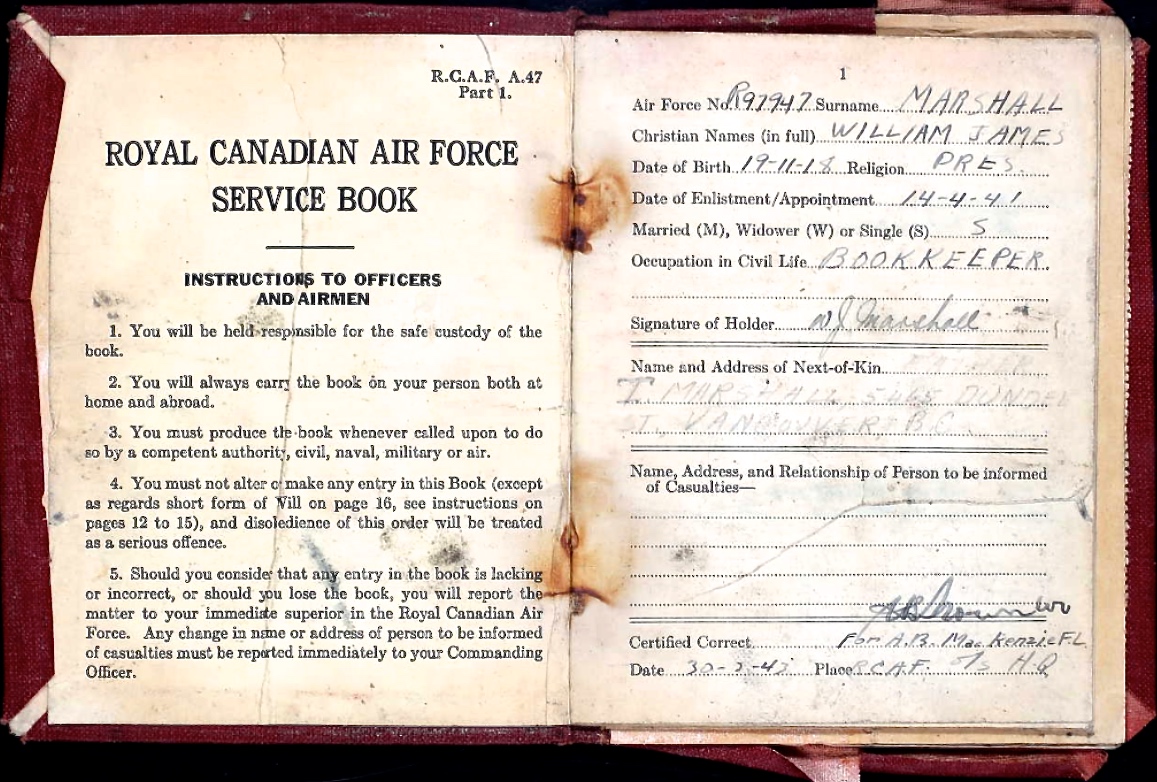 R.C.A.F. A.47
Part 1.
ROYAL CANADIAN AIR FORCE
SERVICE BOOK
INSTRUCTIONS TO OFFICERS
AND AIRMEN
1. You will be held responsible for the safe custody of the
book.
2. You will always carry the book on your person both at
home and abroad.
3. You must produce the book whenever called upon to do
so by a competent authority, civil, naval, military or air.
4. You must not alter or make any entry in this Book (except
as regards short form of Will on page 16, see instructions on
pages 12 to 15), and disobedience of this order will be treated
as a serious offence.
5. Should you consider that any entry in the book is lacking
or incorrect, or should you lose the book, you will report the
matter to your immediate superior in the Royal Canadian Air
Force. Any change in name or address of person to be informed
of casualties must be reported immediately to your Commanding
Officer.
1
Air Force No. R97947 Surname MARSHALL
Christian Names (in full) WILLIAM JAMES
Date of Birth 19-11-18 Religion PRES.
Date of Enlistment/Appointment 14-4-41
Married (M), Widower (W) or Single (S) S
Occupation in Civil Life BOOKKEEPER.
Signature of Holder WJ Marshall
Name and Address of Next-of-Kin
T. MARSHALL, DUNDEE
ST. VANCOUVER, B.C.
Name, Address, and Relationship of Person to be informed
of Casualties—
Certified Correct For A.B. MacKenzie F/L
Date Place R.C.A.F. O/S H.Q